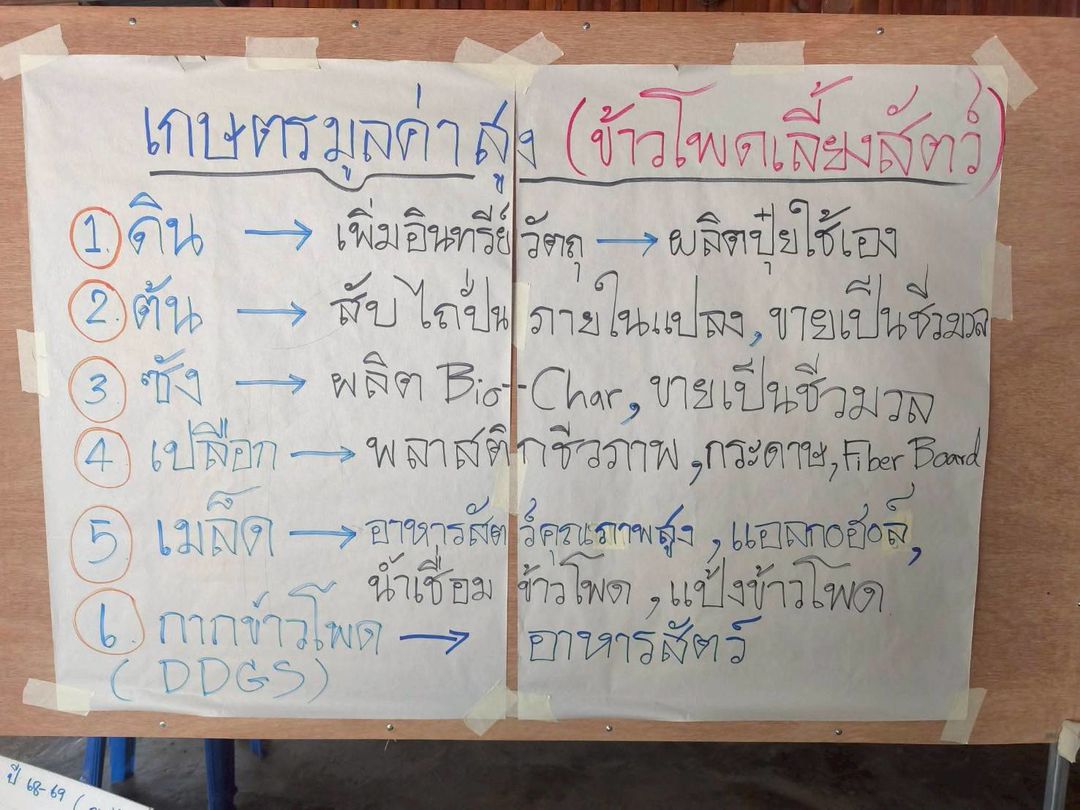 เกษตรมูลค่าสูง (ข้าวโพดเลี้ยงสัตว์)
1. ดิน → เพิ่มอินทรีย์วัตถุ → ผลิตปุ๋ยใช้เอง
2. ต้น → สับ ไถป่น ภายในแปลง, ขายเป็นชีวมวล
3 ซัง → ผลิต Bio-Char, ขายเป็นชีวมวล
4 เปลือก → พลาสติกชีวภาพ, กระดาษ, Fiber Board
5 เมล็ด → อาหารสัตว์คุณภาพสูง, แอลกอฮอล์,
น้ำเชื่อมข้าวโพด, แป้งข้าวโพด
6. กากข้าวโพด → อาหารสัตว์
(DDGS)
ปี 68-69 (